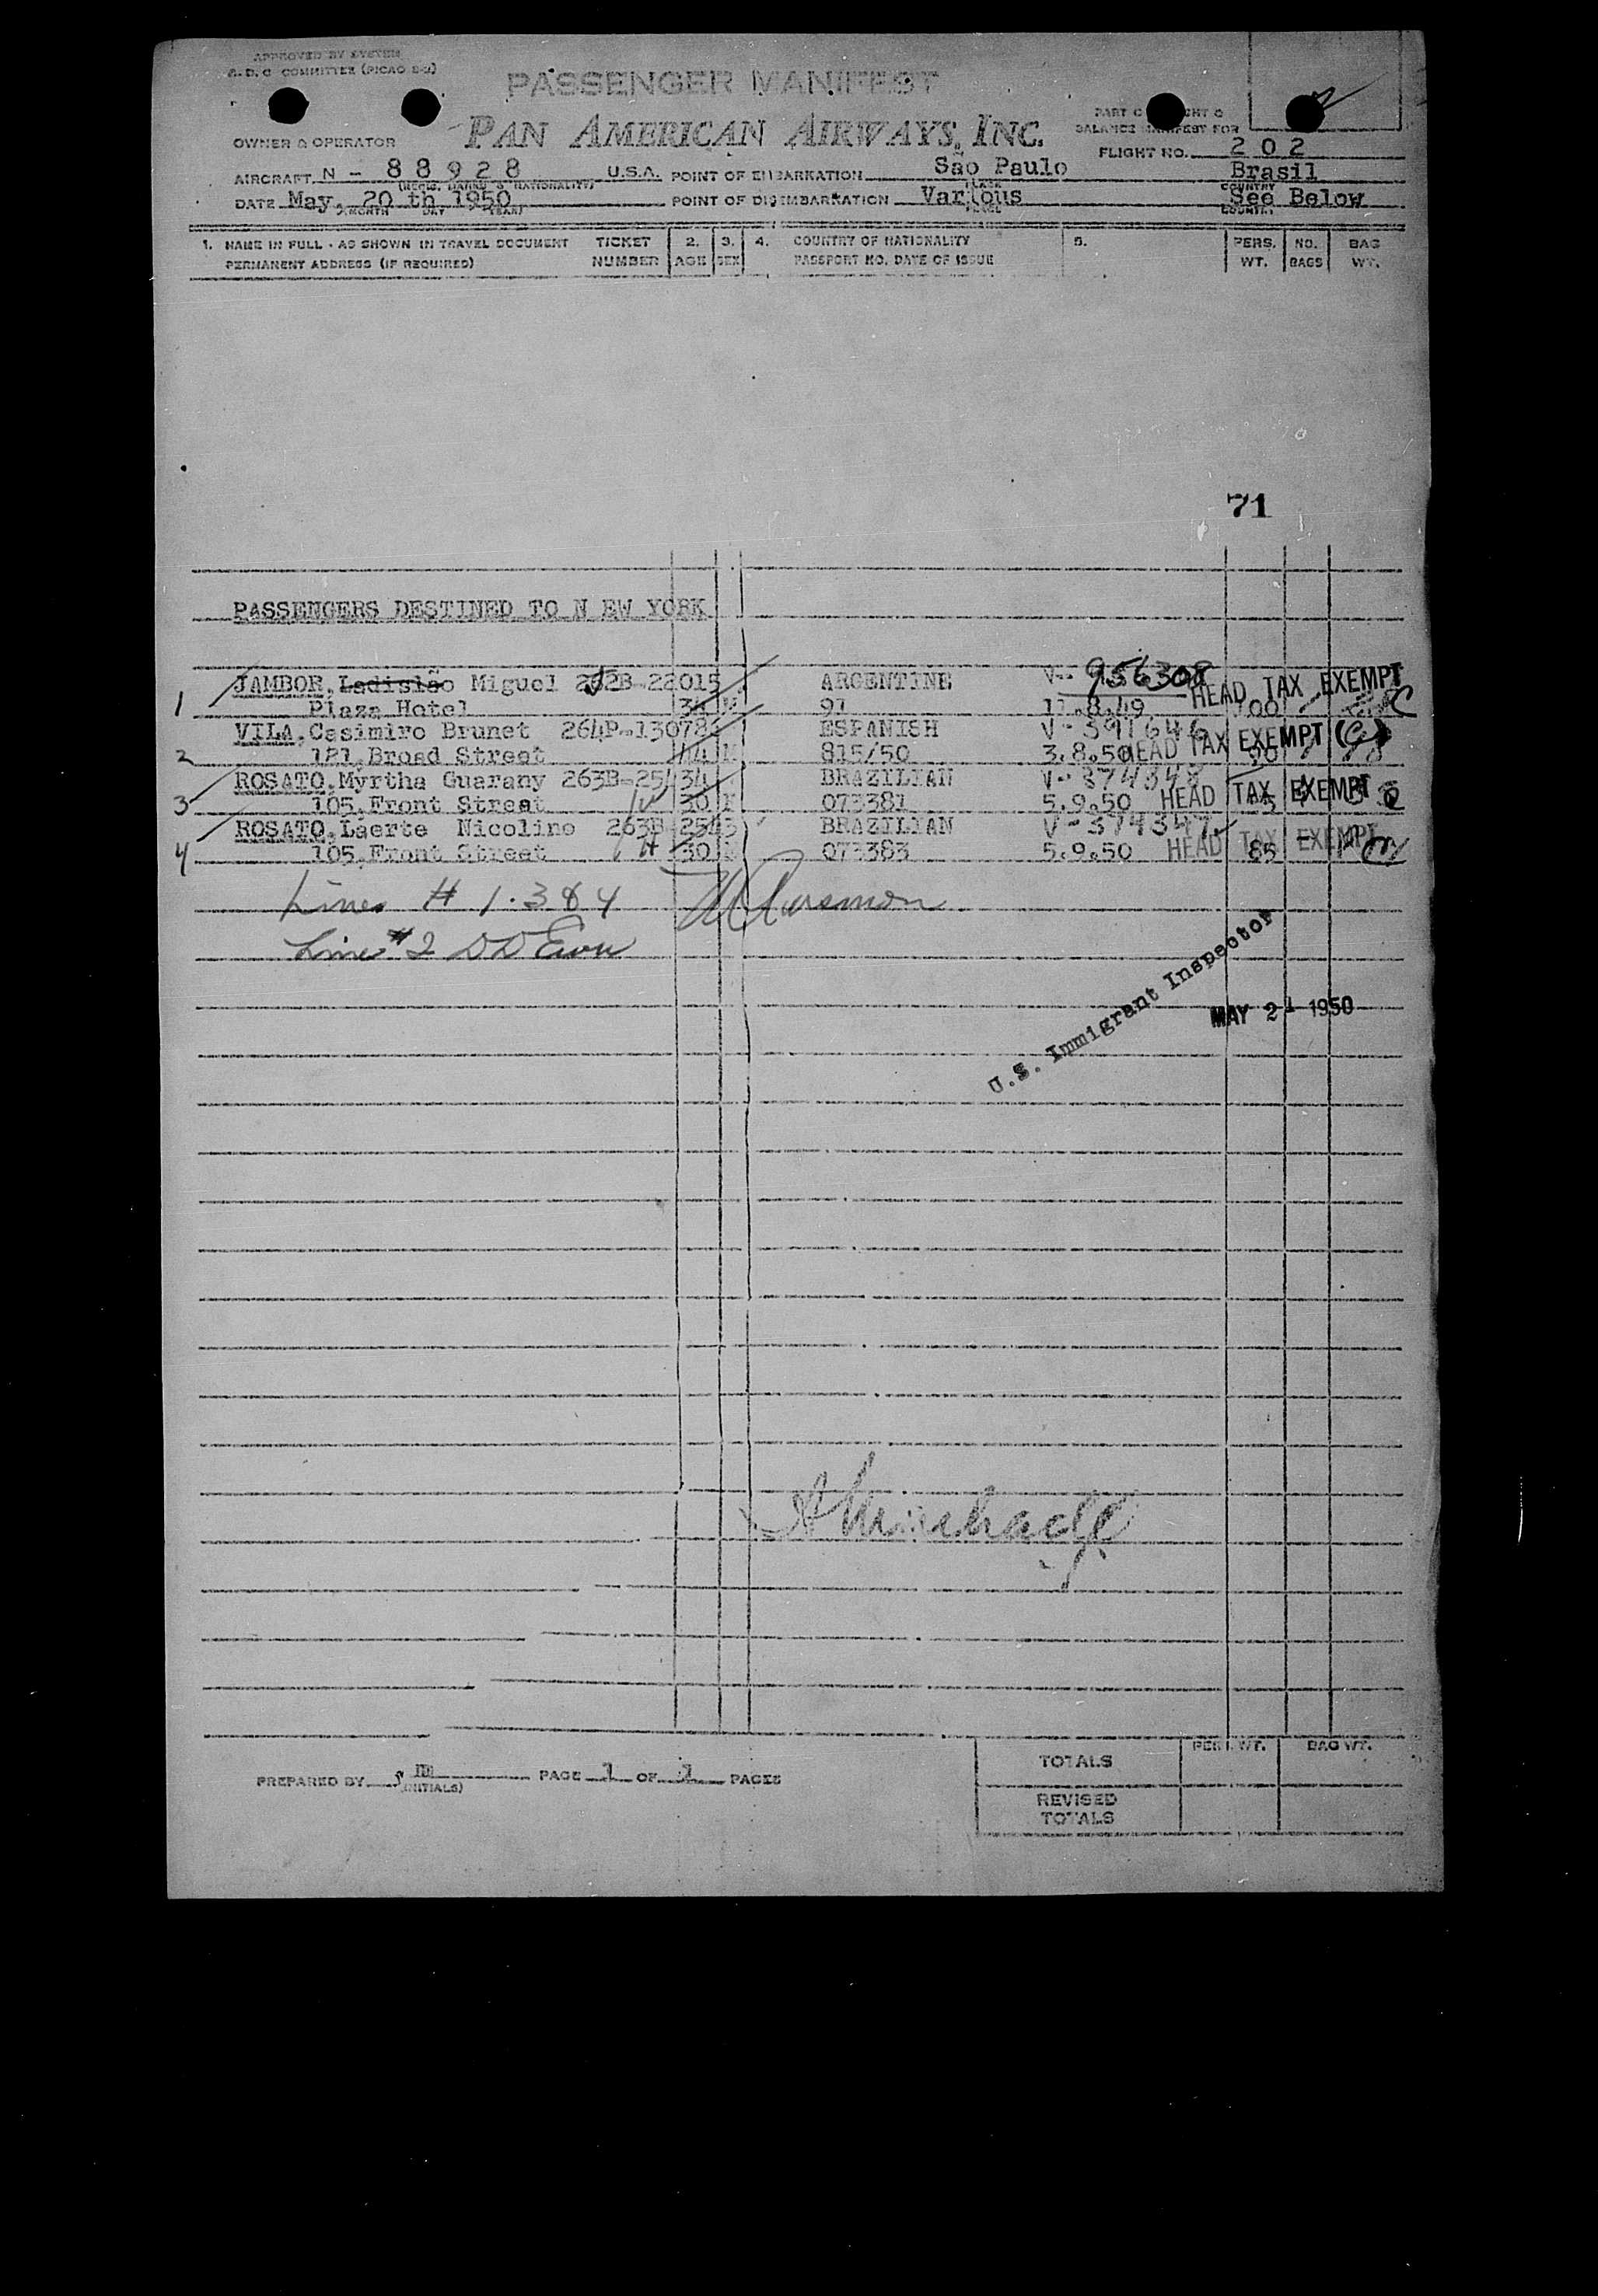 APPROVED BY SYSTEM
A. D. C COMMITTEE (PICAO
PASSENGER MANIFEST
PAN AMERICAN AIRWAYS, INC.
PART
BALANCE MANIFEST FOR
OWNER & OPERATOR
FLIGHT NO. 202
AIRCRAFT N - 88928 U.S.A. POINT OF EMBARKATION São Paulo Brasil
(REGIS. MARKS & NATIONALITY) PLACE COUNTRY
DATE May, 20 th 1950 POINT OF DISEMBARKATION Various See Below
(MONTH DAY YEAR) PLACE COUNTRY
1. NAME IN FULL - AS SHOWN IN TRAVEL DOCUMENT TICKET 2. 3. 4. COUNTRY OF NATIONALITY 5. PERS. NO. BAG
PERMANENT ADDRESS (IF REQUIRED) NUMBER AGE SEX PASSPORT NO. DATE OF ISSUE WT. BAGS WT.
71
PASSENGERS DESTINED TO N EW YORK
JAMBOR, Ladislão Miguel 262B-22015 ARGENTINE V- 956308
HEAD TAX EXEMPT
1 Plaza Hotel 34 M 91 11.8.49 100
VILA, Casimiro Brunet 264P-13078 ESPANISH V-391646
2 121, Broad Street 44 M 815/50 3.8.50 HEAD TAX EXEMPT 90
ROSATO, Myrtha Guarany 263B-25434 BRAZILIAN V-374348
3 105, Front Street 30 F 073381 5.9.50 HEAD TAX EXEMPT
ROSATO, Laerte Nicolino 263B-2543 BRAZILIAN V-374347
4 105, Front Street 30 M 073383 5.9.50 HEAD TAX EXEMPT 85
Lines # 1.3&4
Line #2
U.S. Immigrant Inspector
MAY 21 1950
PERS. WT. BAG WT.
TOTALS
PREPARED BY m PAGE 1 OF 1 PAGES
(INITIALS)
REVISED
TOTALS